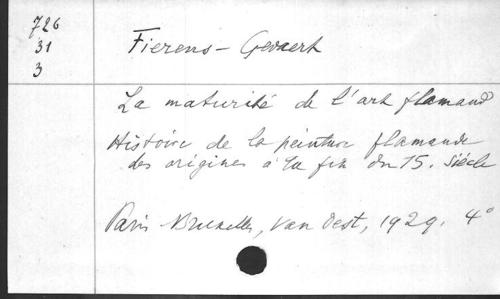 726
31
3
Fierens-Gevaert
La maturité de l'art flamand
Histoire de la peinture flamande
des origines à la fin du 15. siècle
Paris Bruxelles, Van Oest, 1929. 4°